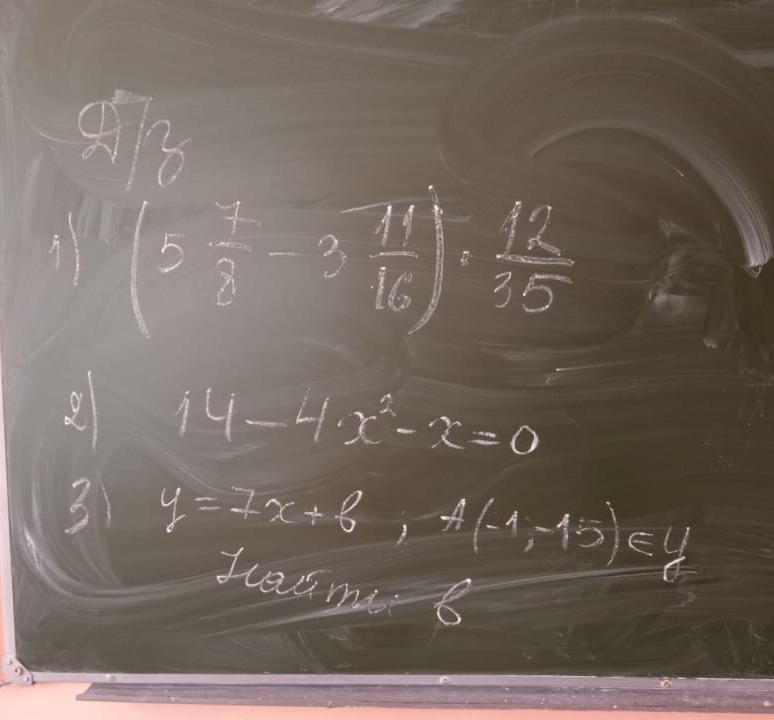 Д/з
1) (5 7/8 - 3 11/16) · 12/35
2) 14 - 4x² - x = 0
3) y = 7x + b ; A(-1; -15) ∈ y
Найти b